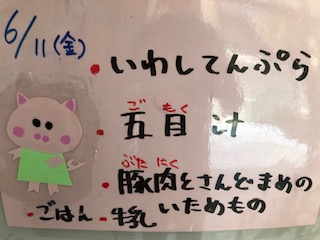 6/11(金)
・いわしてんぷら
ごもく
・五目汁
ぶたにく
・豚肉とさんどまめの
いためもの
・ごはん・牛乳